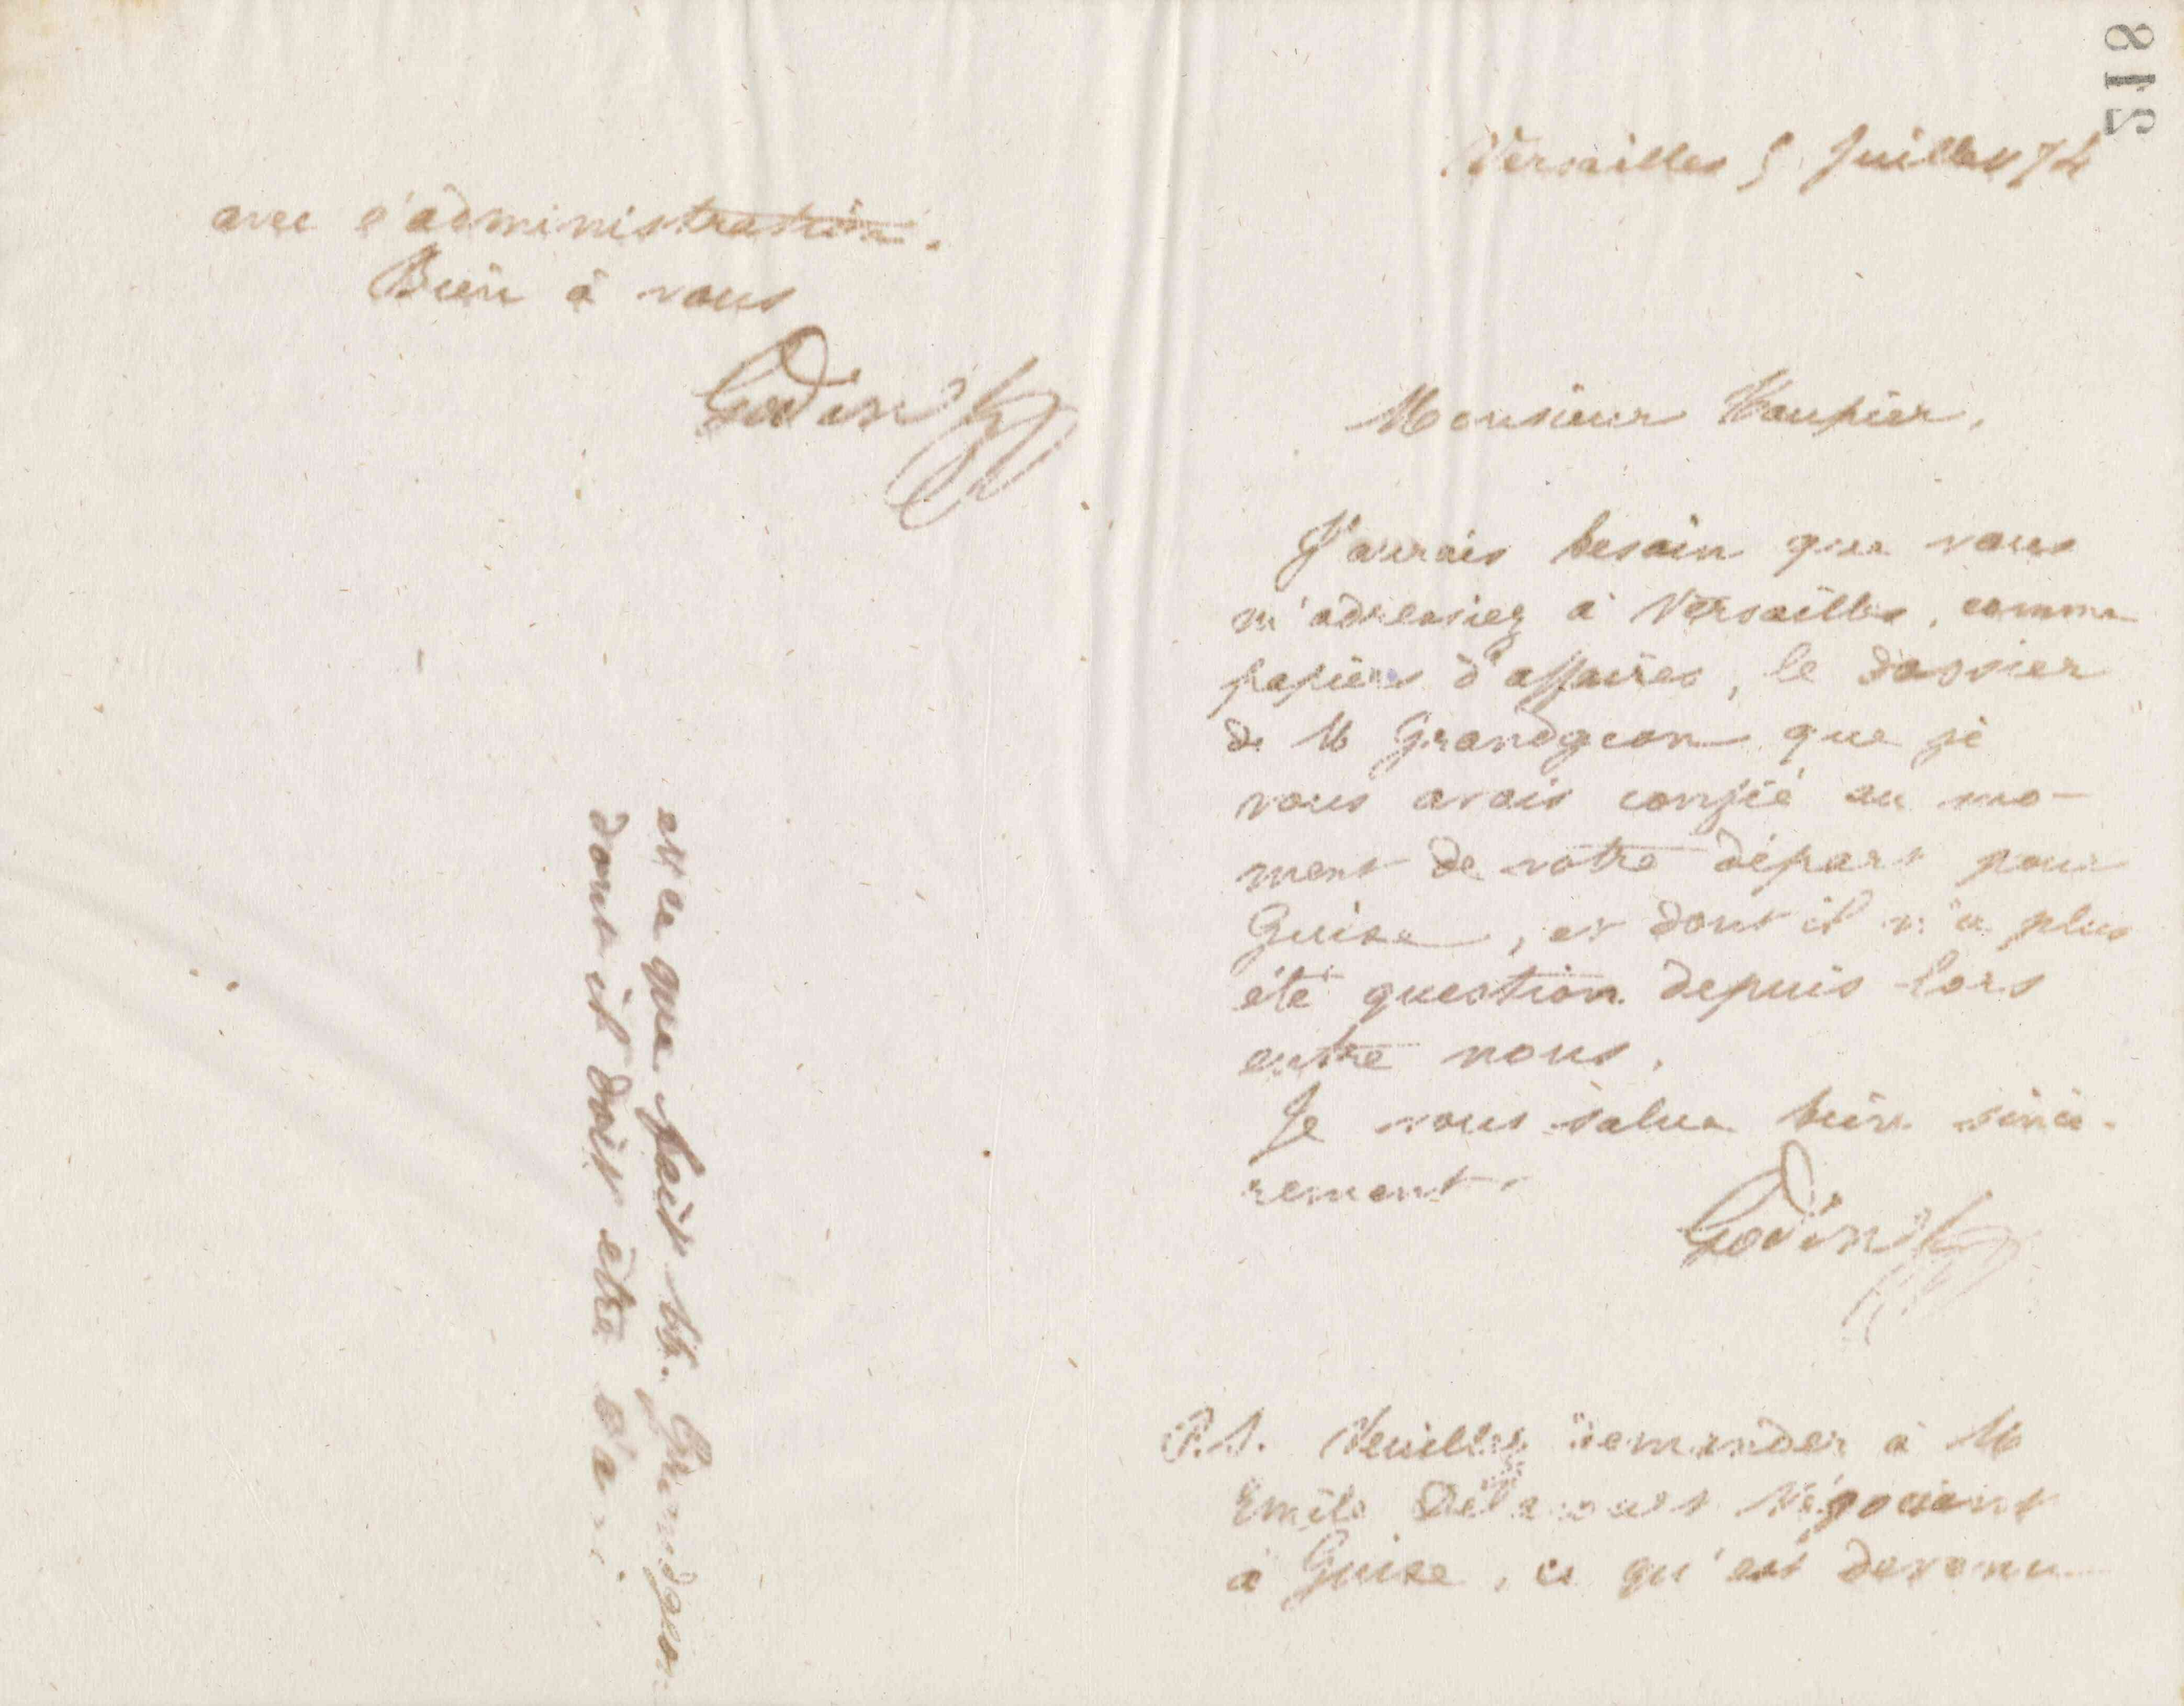 avec l'administration.
Bien à vous
Godin
218
Versailles 5 Juillet 74
Monsieur Vaupier,
J'aurais besoin que vous
m'adressiez à Versailles, comme
papiers d'affaires, le dossier
de M Grandgeon que je
vous avais confié au mo-
ment de votre départ pour
Guise, et dont il n'a plus
été question depuis lors
entre nous.
Je vous salue bien sincè-
rement.
Godin
P.S. Veuillez demander à M
Emile négociant
à Guise, ce qu'est devenu
et ce que fait M. Grandgeon
dont il doit être